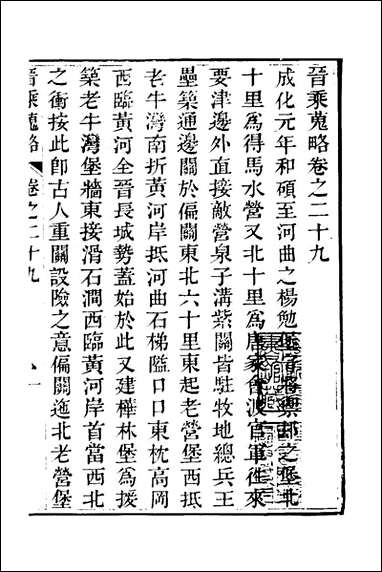 晉乘蒐略卷之二十九
成化元年和碩至河曲之楊勉堡之堡北
十里爲得馬水營又北十里爲唐家會波官軍徃來
要津邊外直接敵營泉子溝紫關皆駐牧地總兵王
壘築通邊關於偏關東北六十里東起老營堡西抵
老牛灣南折黃河岸抵河曲石梯隘口口東枕高岡
西臨黃河全晉長城勢蓋始於此又建樺林堡爲援
築老牛灣堡牆東接滑石澗西臨黃河岸首當西北
之衝按此卽古人重關設險之意偏關迤北老營堡
晉乘蒐略 卷之二十九 一